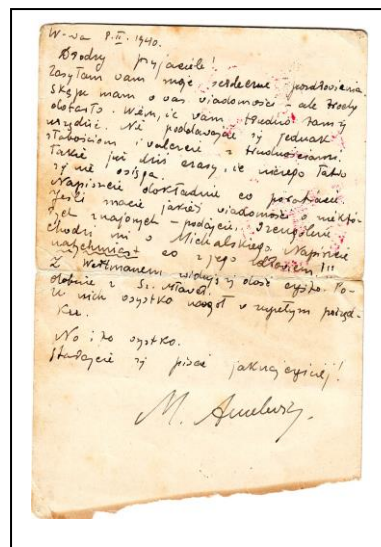 W-wa 8.II.1940.
Drodzy przyjaciele!
Zasyłam wam moje serdeczne pozdrowienia.
Skąpe mam o was wiadomości - ale trochy
dotarło. Wiem, że wam trudno tam się
urządzić. Nie poddawajcie się jednak
słabościom i walczcie z trudnościami.
Takie już dziś czasy, że niczego łatwo
się nie osiąga.
Napiszcie dokładnie co porabiacie.
Jeśli macie jakieś wiadomości o niektó-
rych znajomych - podajcie. Szczególnie
chodzi mi o Michalskiego. Napiszcie
natychmiast co z jego zdrowiem!!!
Z widuję się dość często. Po-
dobnie z
U nich wszystko naogół w zupełnym porząd-
ku.
No i to wszystko.
Starajcie się pisać jaknajczęściej!
M.